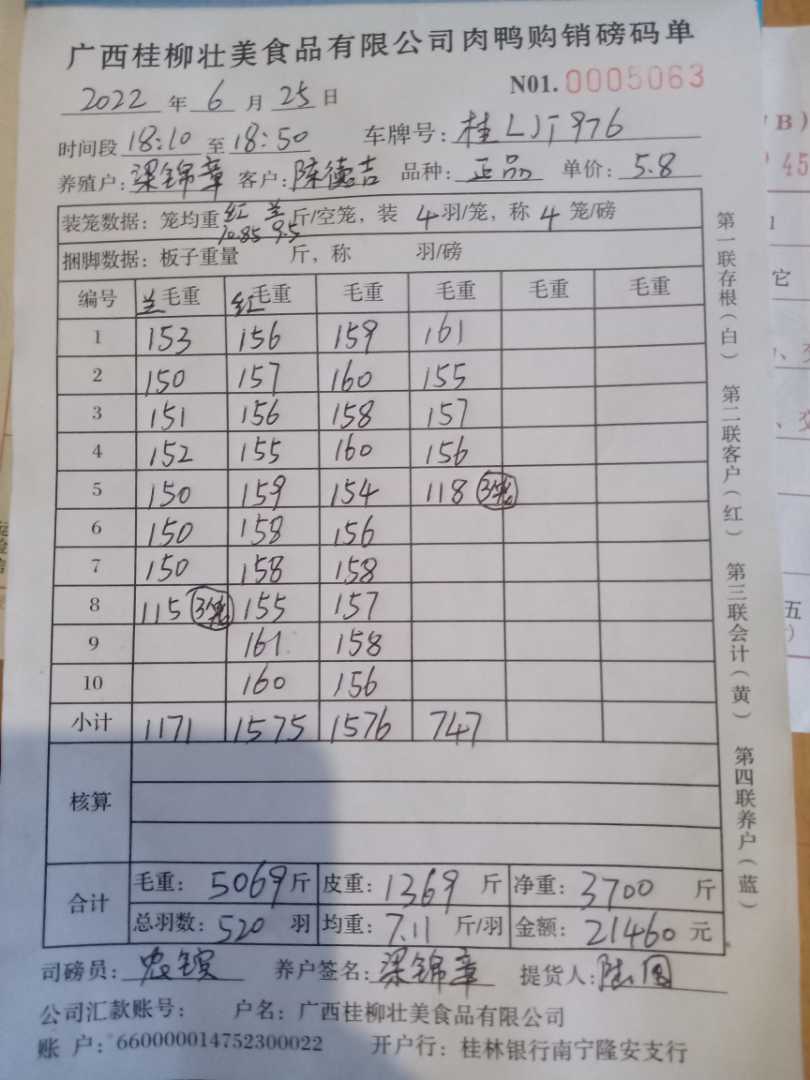 广西桂柳壮美食品有限公司肉鸭购销磅码单
N01. 0005063
2022 年 6 月 25 日
时间段 18:10 至 18:50 车牌号: 桂LJT976
养殖户: 梁锦章 客户: 陈德吉 品种: 正品 单价: 5.8
装笼数据: 笼均重 红10.85 兰9.5 斤/空笼, 装 4 羽/笼, 称 4 笼/磅
捆脚数据: 板子重量 斤, 称 羽/磅
编号 兰毛重 红毛重 毛重 毛重 毛重 毛重
1 153 156 159 161
2 150 157 160 155
3 151 156 158 157
4 152 155 160 156
5 150 159 154 118 3笼
6 150 158 156
7 150 158 158
8 115 3笼 155 157
9 161 158
10 160 156
小计 1171 1575 1576 747
核算
合计 毛重: 5069 斤 皮重: 1369 斤 净重: 3700 斤
总羽数: 520 羽 均重: 7.11 斤/羽 金额: 21460 元
司磅员: 养户签名: 梁锦章 提货人:
公司汇款账号: 户名: 广西桂柳壮美食品有限公司
账 户: 660000014752300022 开户行: 桂林银行南宁隆安支行
第一联存根(白) 第二联客户(红) 第三联会计(黄) 第四联养户(蓝)